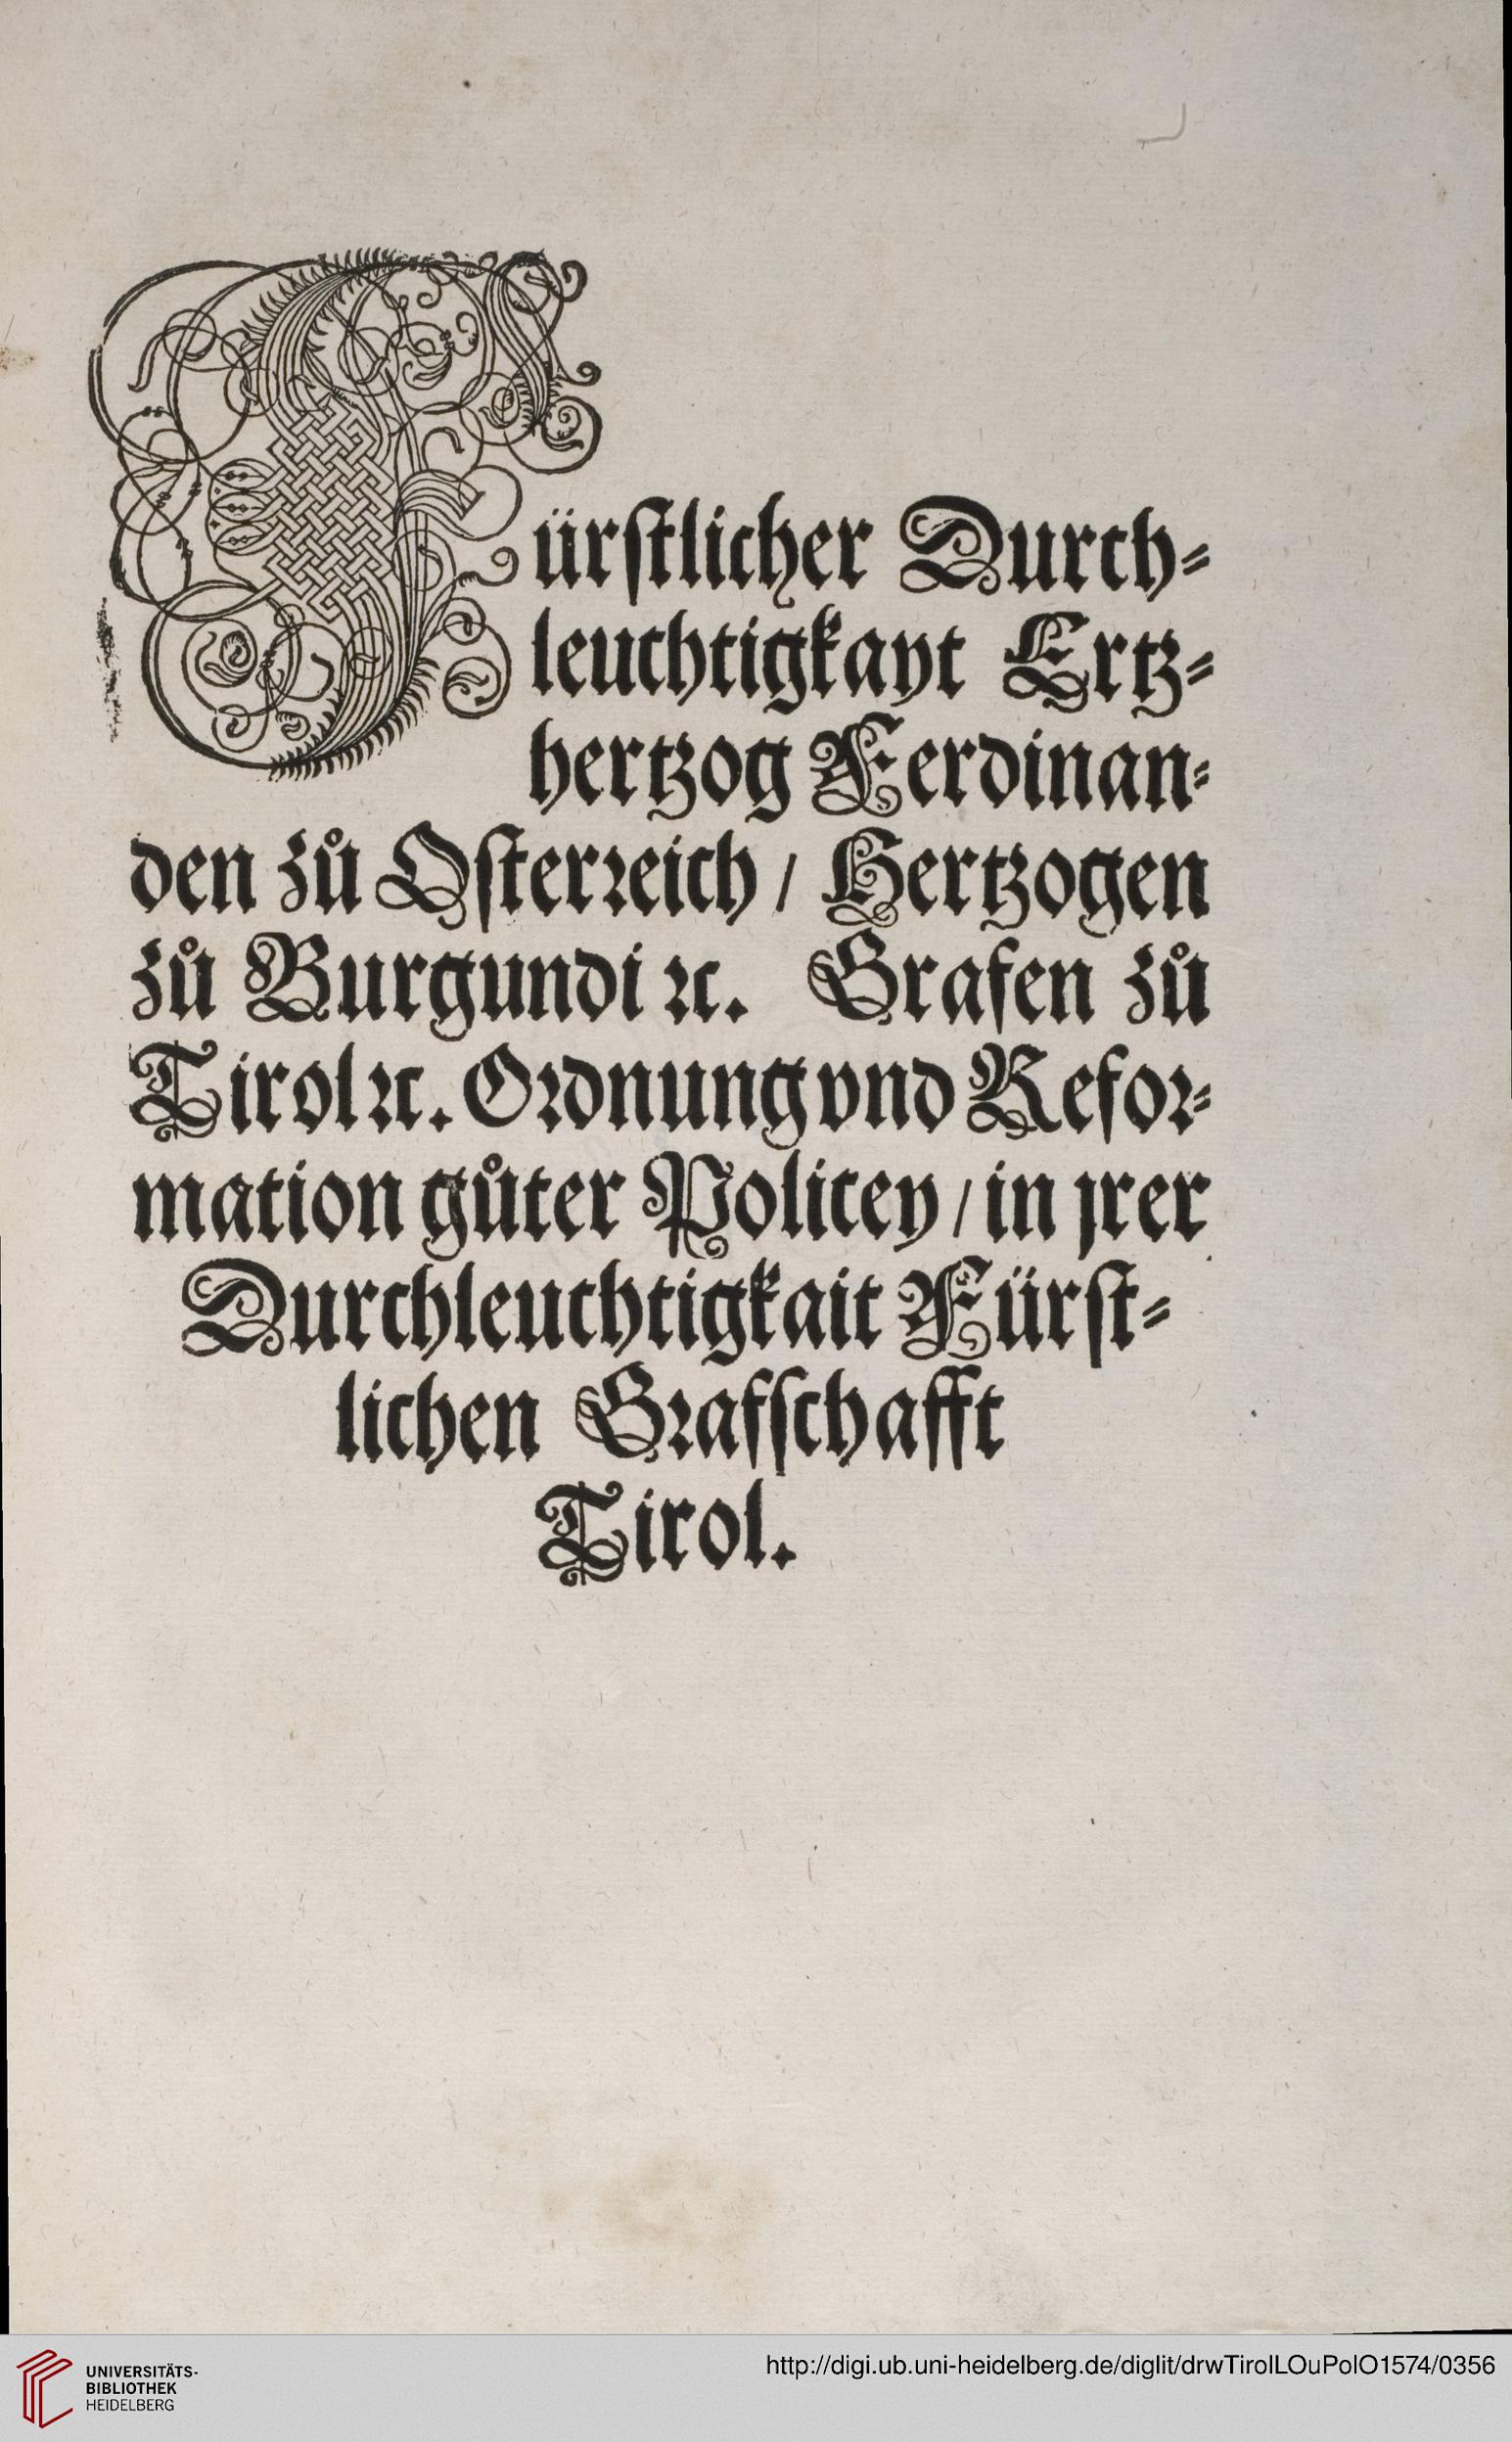 Fürſtlicher Durch⸗
leuchtigkayt Ertz⸗
hertzog Ferdinan⸗
den zů Oſterꝛeich / Hertzogen
zů Burgundi ꝛc. Grafen zů
Tirol ꝛc. Oꝛdnung vnd Refoꝛ⸗
mation gůter Policey / in jrer
Durchleuchtigkait Fürſt⸗
lichen Gꝛafſchafft
Tirol.
UNIVERSITÄTS-
BIBLIOTHEK
HEIDELBERG
http://digi.ub.uni-heidelberg.de/diglit/drwTirolLOuPolO1574/0356